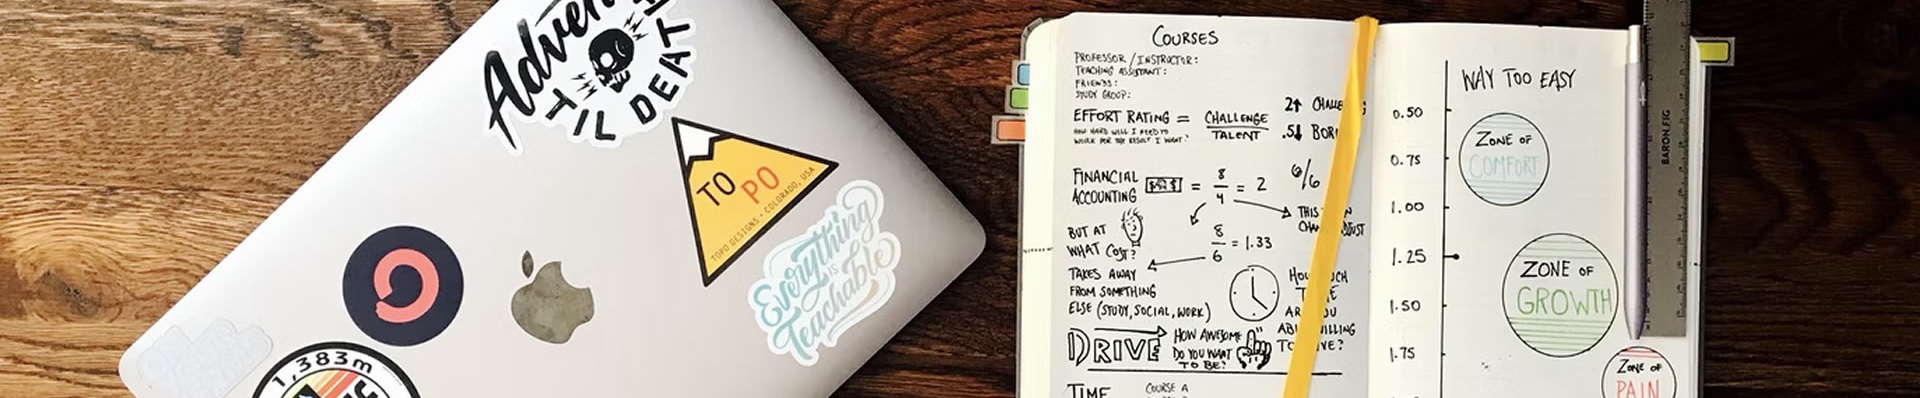 TIL DEAT
TO PO
TOPO DESIGNS • COLORADO, USA
Everything
is
Teachable
1,383m
COURSES
PROFESSOR / INSTRUCTOR:
TEACHING ASSISTANT:
FRIENDS:
STUDY GROUP:
EFFORT RATING = CHALLENGE
TALENT
HOW HARD WILL I NEED TO
WORK FOR THE RESULT I WANT?
2↑
.5↓
FINANCIAL
ACCOUNTING
= 8/4 = 2
6/6
THIS
BUT AT
WHAT COST?
8/6 = 1.33
TAKES AWAY
FROM SOMETHING
ELSE (STUDY, SOCIAL, WORK)
DRIVE
HOW AWESOME
DO YOU WANT
TO BE?
TIME
COURSE A
WAY TOO EASY
0.50
0.75
1.00
1.25
1.50
1.75
ZONE OF
COMFORT
ZONE OF
GROWTH
ZONE OF
PAIN
BARON FIG